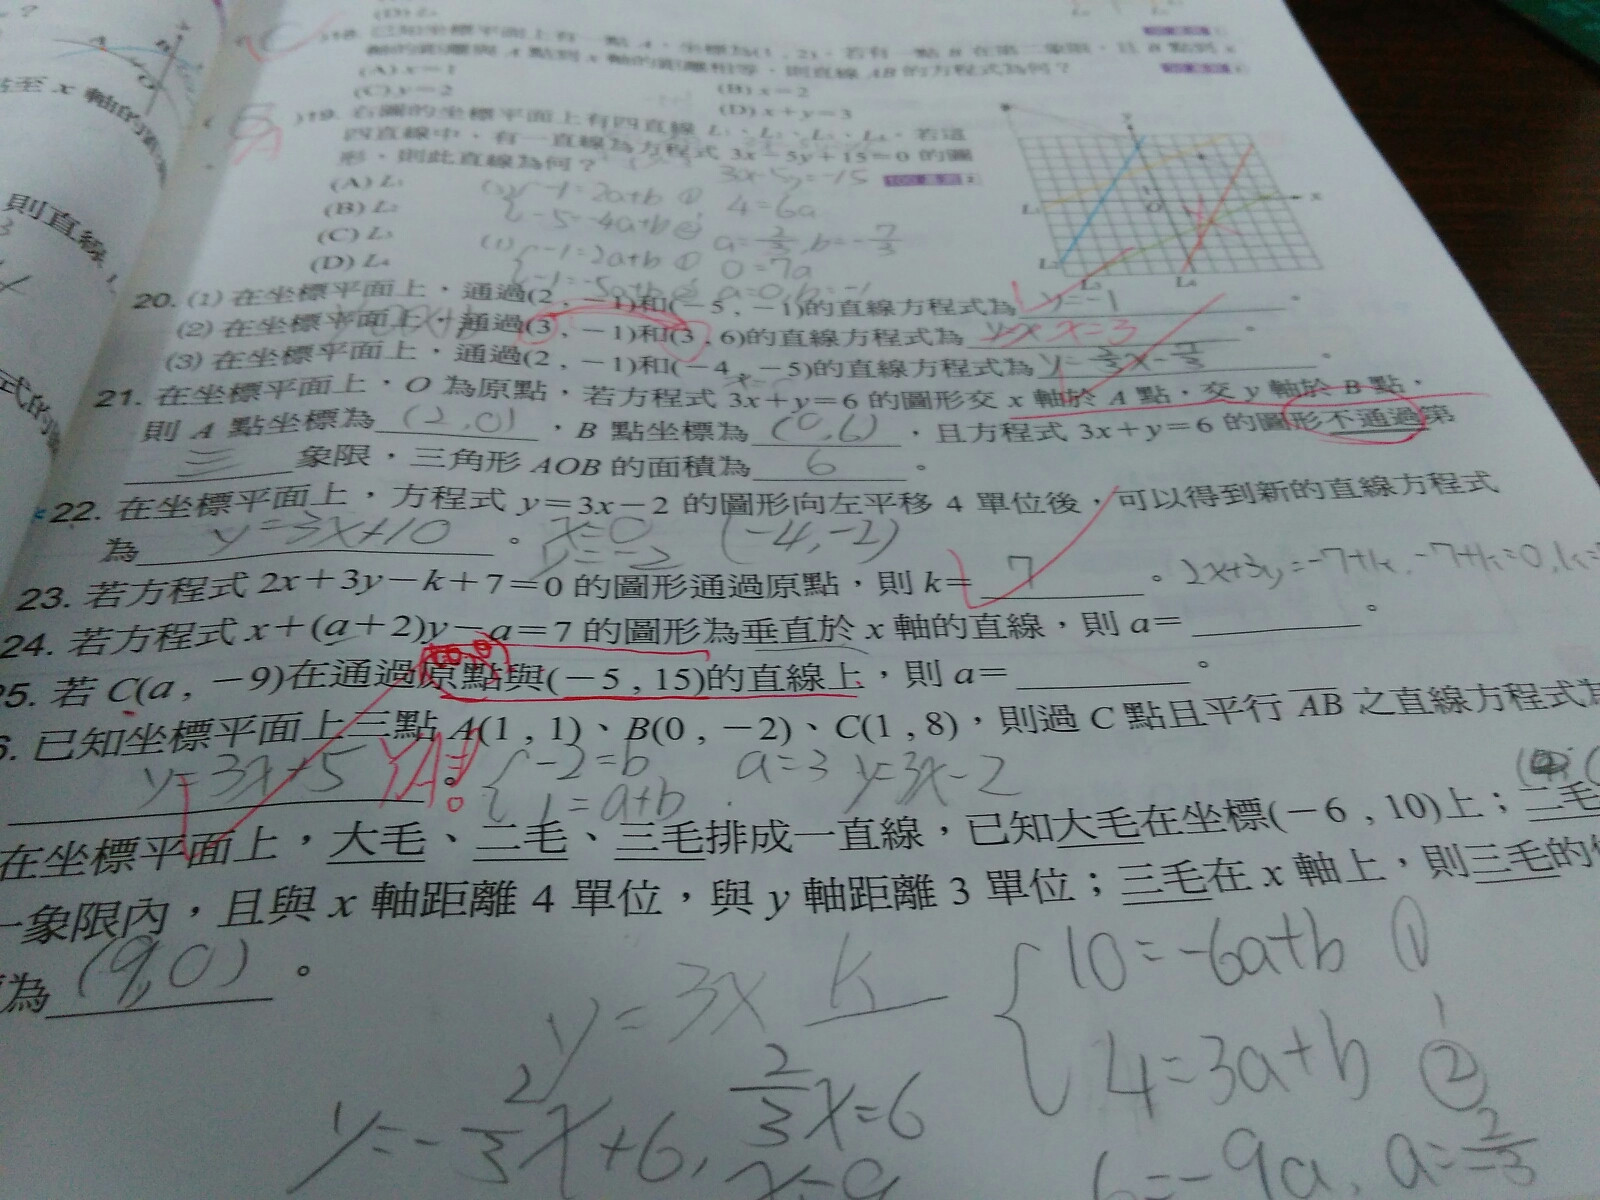 (D) L₄
18. 已知坐標平面上有一點 A，坐標為(1 , 2)，若有一點 B 在第二象限，且 B 點到 x
軸的距離與 A 點到 x 軸的距離相等，則直線 AB 的方程式為何？
(A) x=1 (B) x=2
(C) y=2 (D) x+y=3
19. 右圖的坐標平面上有四直線 L₁、L₂、L₃、L₄，若這
四直線中，有一直線為方程式 3x－5y＋15＝0 的圖
形，則此直線為何？
3x-5y=-15
(A) L₁
(B) L₂
(C) L₃
(D) L₄
(3) -1=2a+b ① 4=6a
-5=-4a+b ② a=2/3, b=-7/3
(1) -1=2a+b ① 0=7a
-1=-5a+b ② a=0, b=-1
20. (1) 在坐標平面上，通過(2 , －1)和(－5 , －1)的直線方程式為 y=-1 。
(2) 在坐標平面上，通過(3 , －1)和(3 , 6)的直線方程式為 x=3 。
(3) 在坐標平面上，通過(2 , －1)和(－4 , －5)的直線方程式為 y=2/3x-7/3 。
21. 在坐標平面上，O 為原點，若方程式 3x＋y＝6 的圖形交 x 軸於 A 點，交 y 軸於 B 點，
則 A 點坐標為 (2,0) ，B 點坐標為 (0,6) ，且方程式 3x＋y＝6 的圖形不通過第
三 象限，三角形 AOB 的面積為 6 。
22. 在坐標平面上，方程式 y＝3x－2 的圖形向左平移 4 單位後，可以得到新的直線方程式
為 y=3x+10 。 x=0 y=-2 (-4,-2)
23. 若方程式 2x＋3y－k＋7＝0 的圖形通過原點，則 k＝ 7 。 2x+3y=-7+k, -7+k=0, k=
24. 若方程式 x＋(a＋2)y－a＝7 的圖形為垂直於 x 軸的直線，則 a＝ 。
25. 若 C(a , －9)在通過原點與(－5 , 15)的直線上，則 a＝ 。
6. 已知坐標平面上三點 A(1 , 1)、B(0 , －2)、C(1 , 8)，則過 C 點且平行 AB 之直線方程式為
y=3x+5 YA! 。 -2=b a=3 y=3x-2
1=a+b
在坐標平面上，大毛、二毛、三毛排成一直線，已知大毛在坐標(－6 , 10)上；二毛
一象限內，且與 x 軸距離 4 單位，與 y 軸距離 3 單位；三毛在 x 軸上，則三毛的
為 (9,0) 。
y=3x k
10=-6a+b ①
4=3a+b ②
y=-2/3x+6, 2/3x=6
x=9
6=-9a, a=2/-3